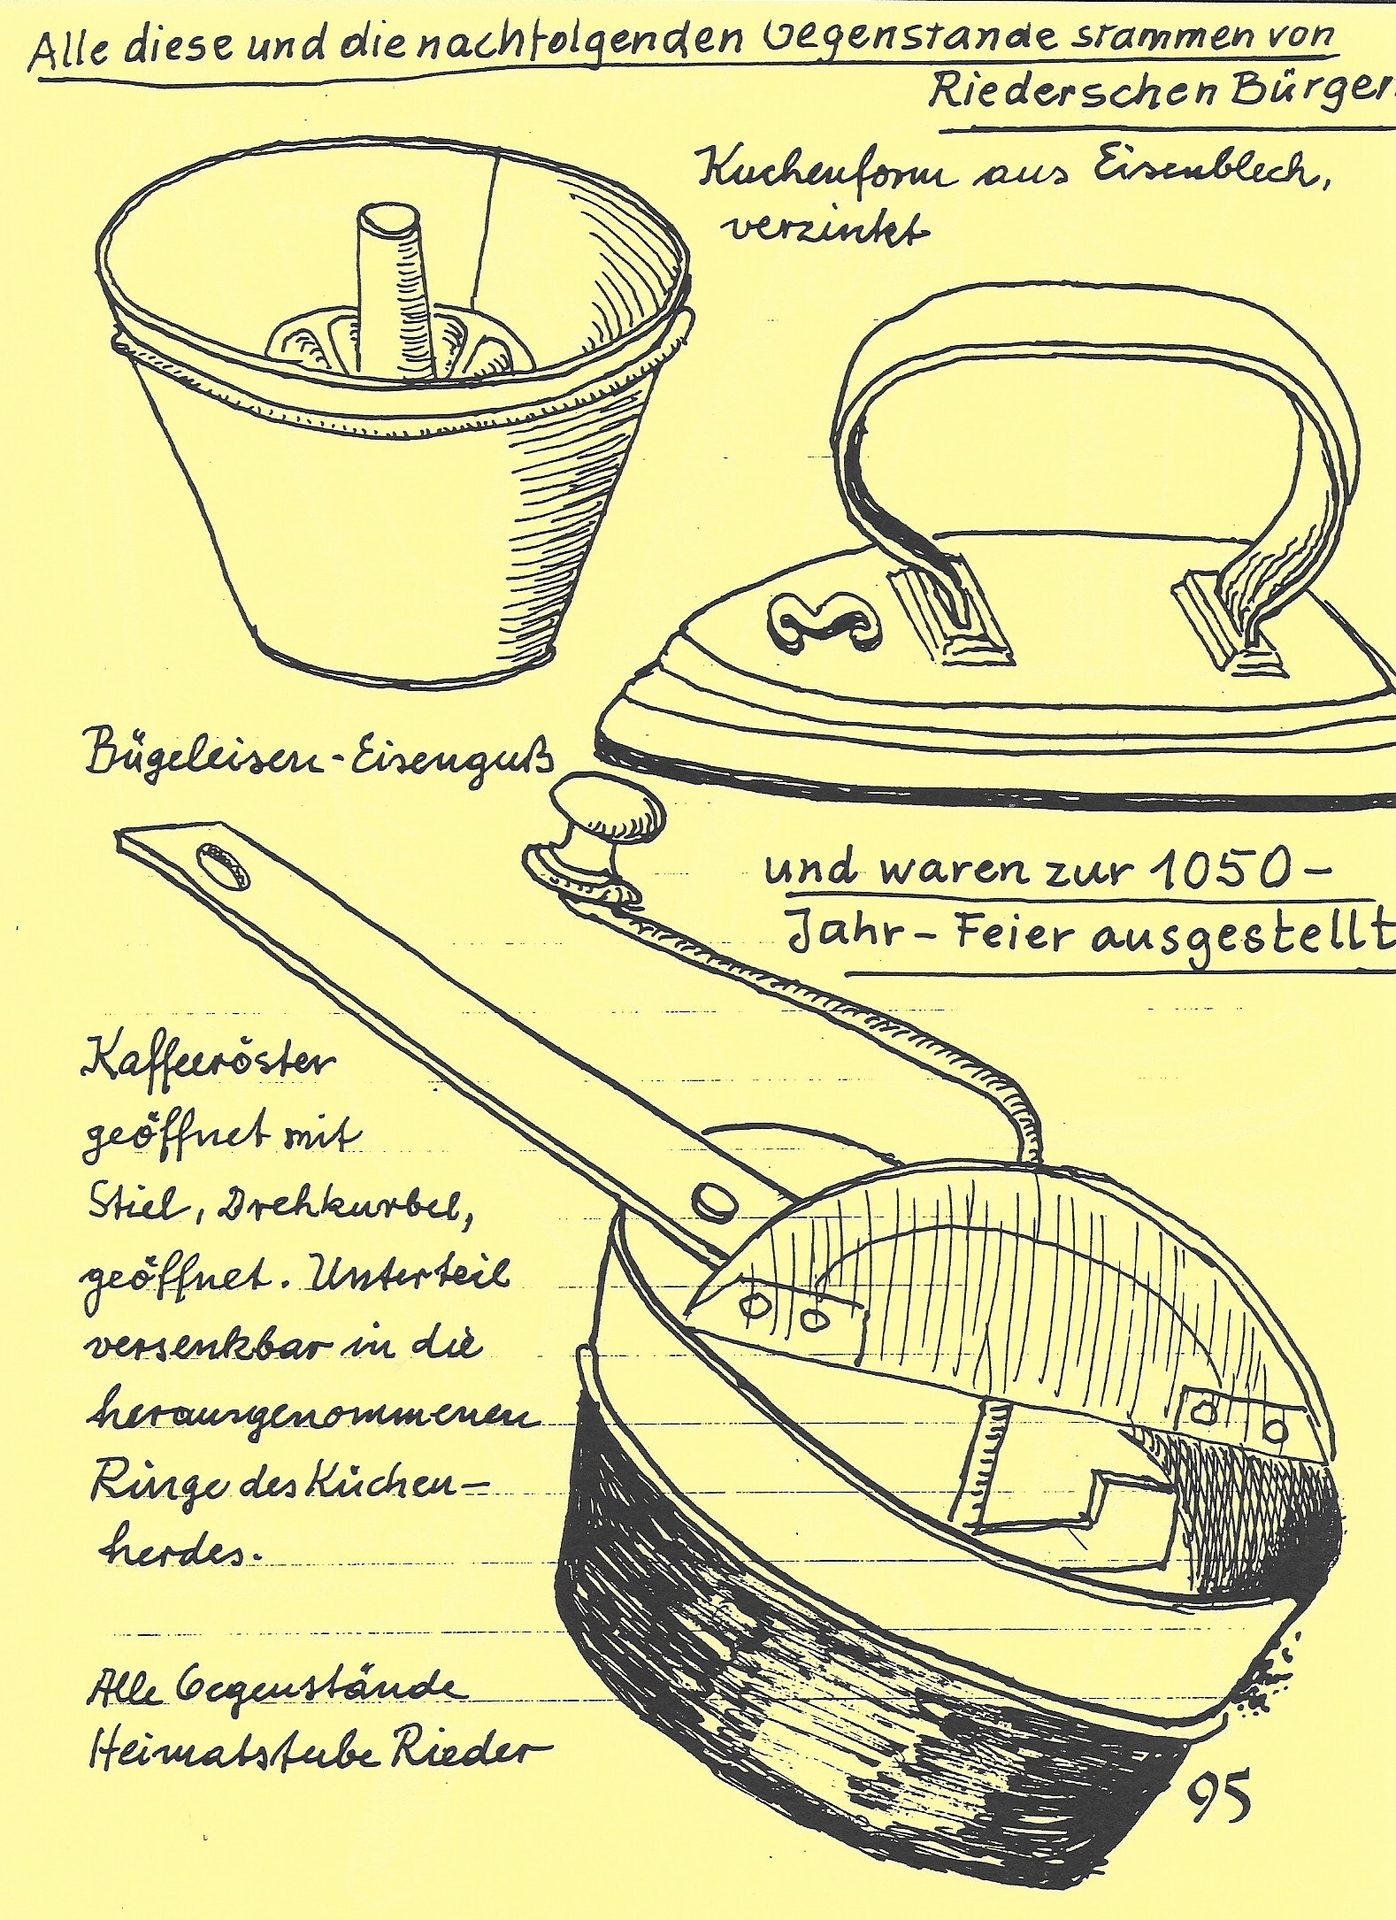 Alle diese und die nachfolgenden Gegenstände stammen von
Riederschen Bürger
Kuchenform aus Eisenblech,
verzinkt
Bügeleisen-Eisenguß
und waren zur 1050-
Jahr-Feier ausgestellt
Kaffeeröster
geöffnet mit
Stiel, Drehkurbel,
geöffnet. Unterteil
versenkbar in die
herausgenommenen
Ringe des Küchen-
herdes.
Alle Gegenstände
Heimatstube Rieder
95